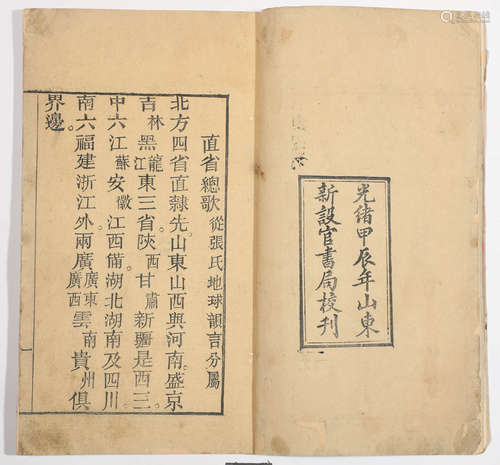 光緒甲辰年山東
新設官書局校刊
直省總歌從張氏地球韻言分屬
北方四省直隸先。山東山西與河南。盛京
吉林黑龍江東三省。陝西甘肅新疆是西三。
中六江蘇安徽江西備。湖北湖南及四川。
南六福建浙江外。兩廣廣東廣西雲南貴州俱
界邊。